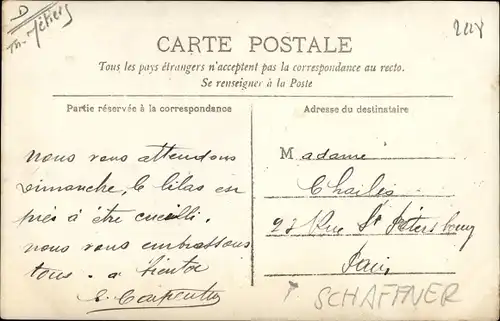 D
Th. Métiers
CARTE POSTALE
Tous les pays étrangers n'acceptent pas la correspondance au recto.
Se renseigner à la Poste
Partie réservée à la correspondance
nous vous attendons
Dimanche, le lilas est
près à être cueilli.
nous vous embrassons
tous. a bientot
E. Carpentier
Adresse du destinataire
Madame
Charles
93 Rue St Pétersbourg
Paris
SCHAFFNER